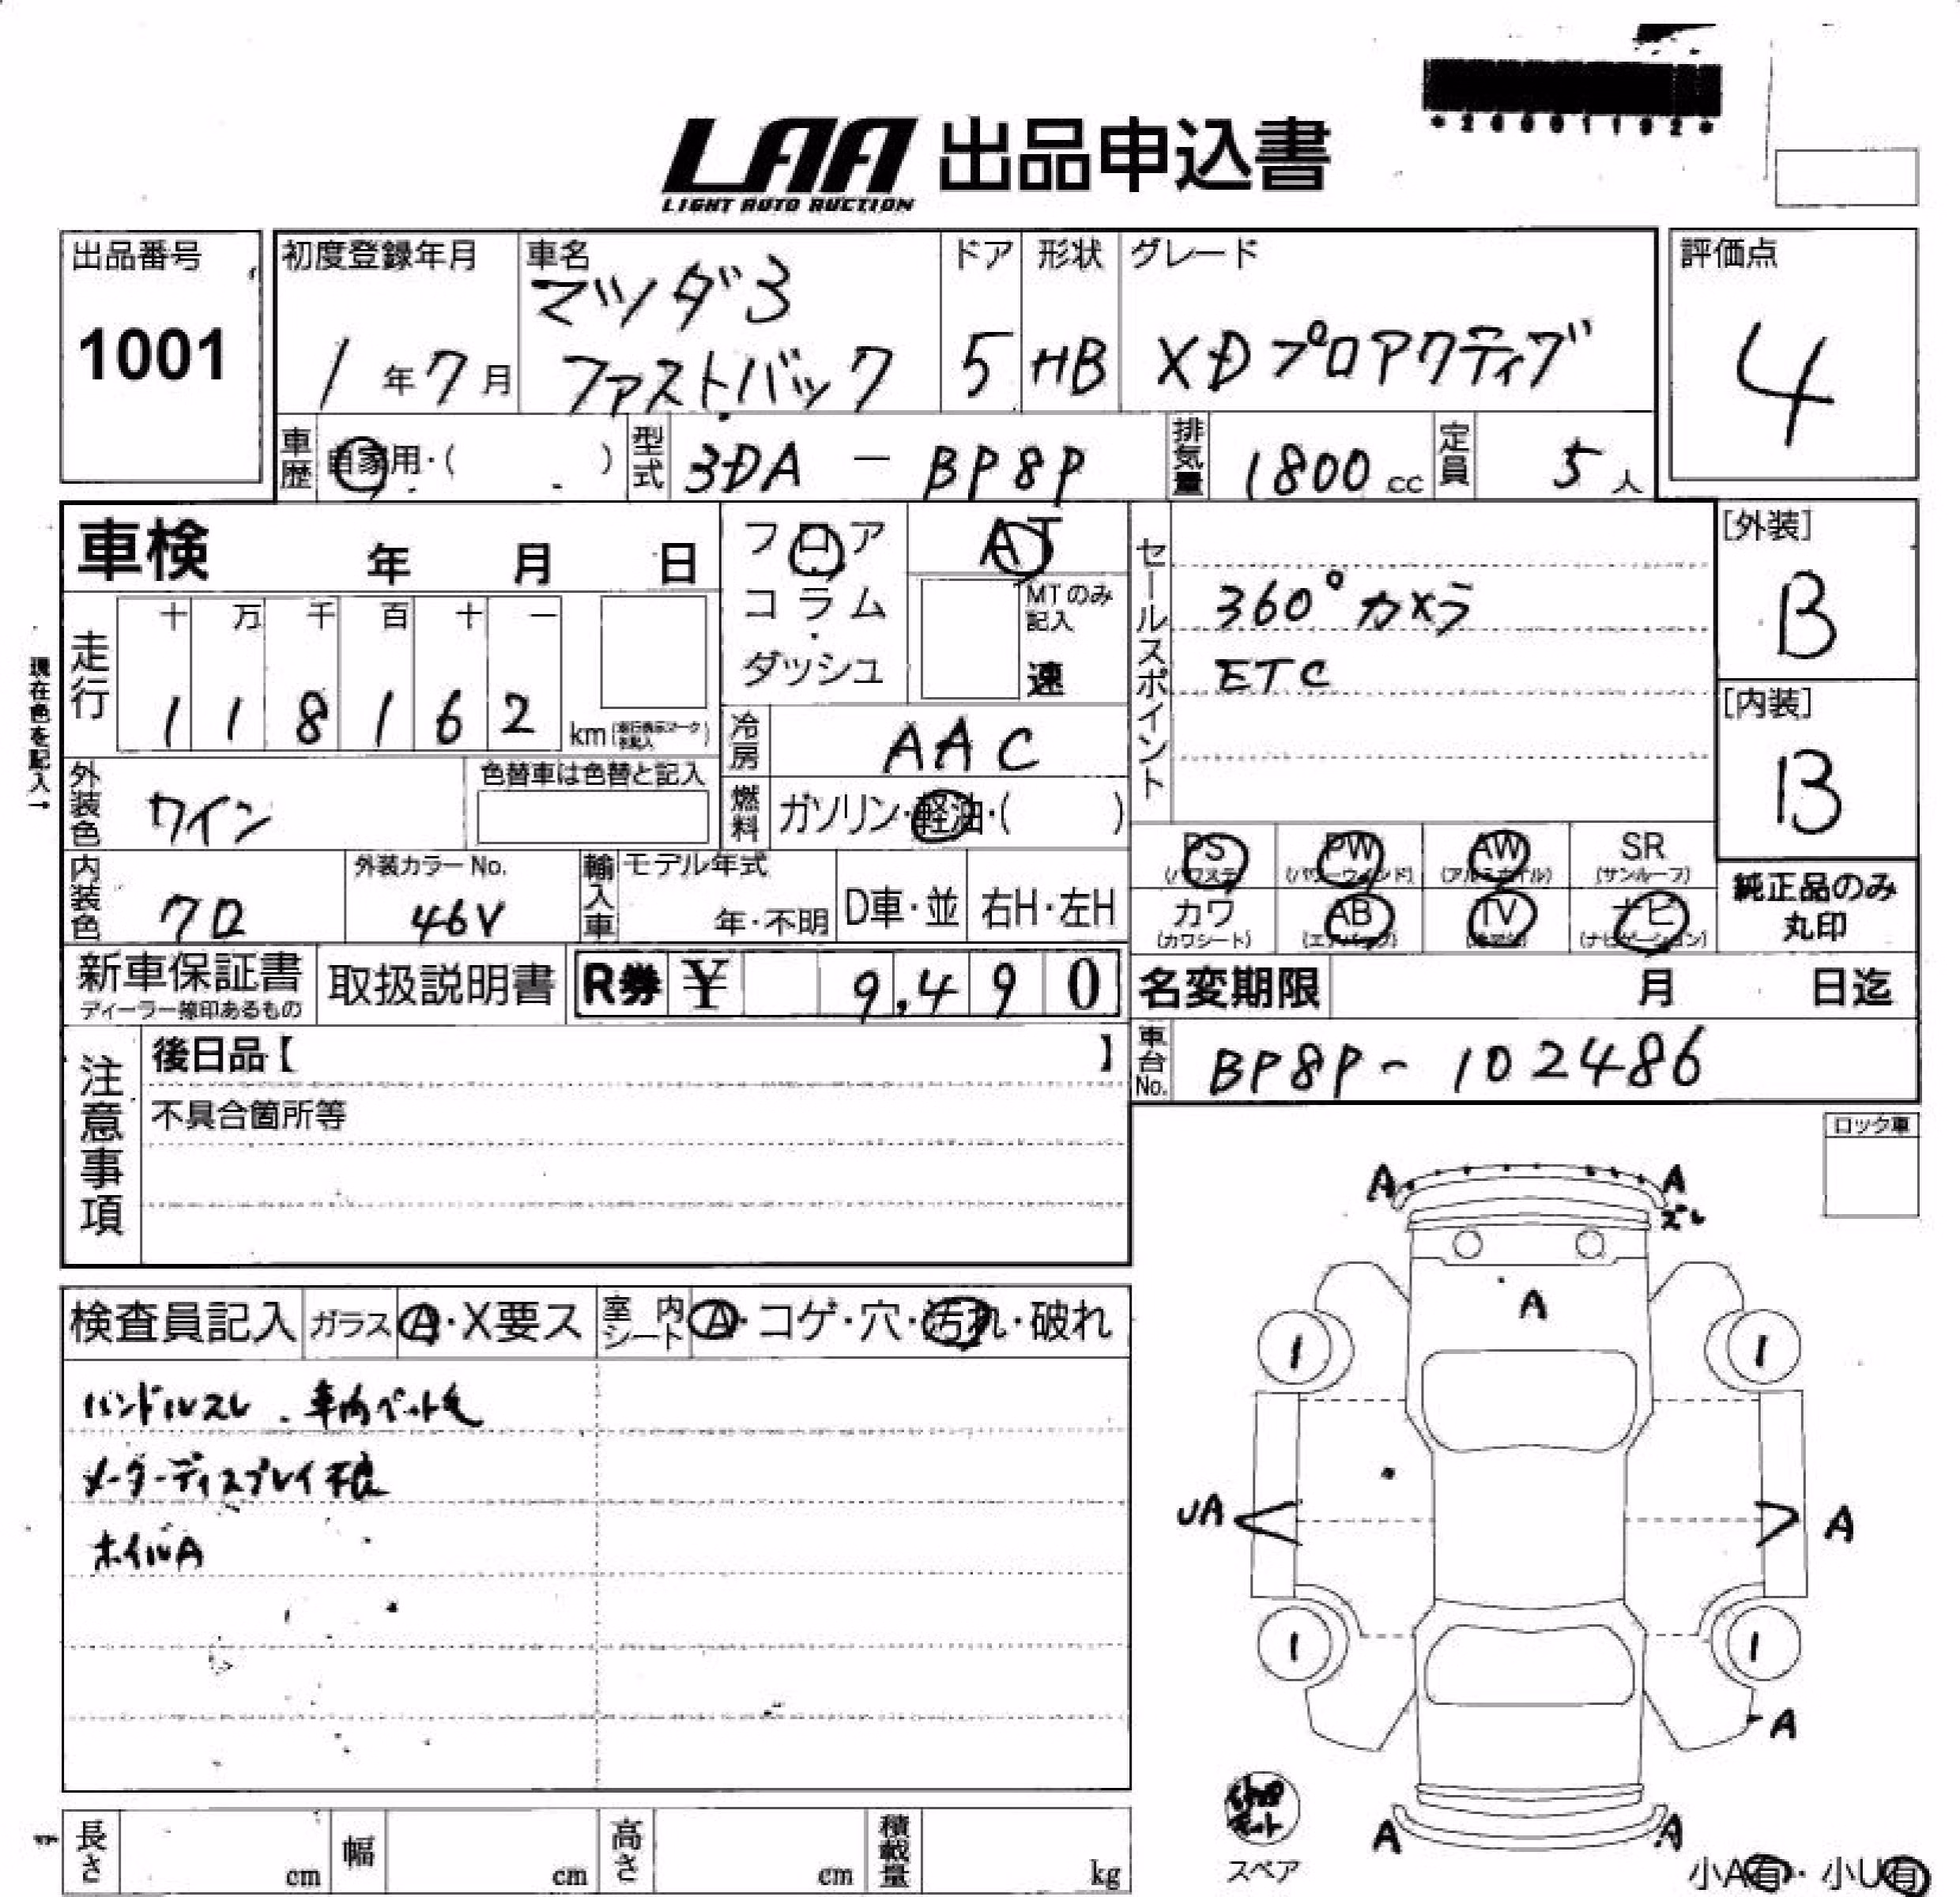 *26001102*
LAA 出品申込書
LIGHT AUTO AUCTION
出品番号
1001
初度登録年月
1年7月
車名
マツダ3
ファストバック
ドア
5
形状
HB
グレード
XDプロアクティブ
評価点
4
車歴
自家用・( )
型式
3DA - BP8P
排気量
1800 cc
定員
5人
車検 年 月 日
フロア
コラム
・
ダッシュ
AT
MTのみ
記入
速
セールスポイント
360°カメラ
ETC
[外装]
B
[内装]
B
現在色を記入→
走行
十 万 千 百 十 一
1 1 8 1 6 2
km
冷房
AAC
外装色
ワイン
色替車は色替と記入
燃料
ガソリン・軽油・( )
内装色
クロ
外装カラーNo.
46V
輸入車
モデル年式
年・不明
D車・並
右H・左H
PS
(パワステ)
PW
(パワーウインド)
AW
(アルミホイル)
SR
(サンルーフ)
カワ
(カワシート)
AB
(エアバック)
TV
ナビ
(ナビゲーション)
純正品のみ
丸印
新車保証書
ディーラー捺印あるもの
取扱説明書
R券 ¥ 9,490
名変期限 月 日迄
車台No.
BP8P-102486
注意事項
後日品【 】
不具合箇所等
ロック車
検査員記入
ガラス
A・X要ス
室内シート
A・コゲ・穴・汚れ・破れ
ハンドルスレ、車内ペット毛
メーターディスプレイ不良
ホイルA
A A
ズレ
A
1 1
UA A
1 1
A
A A
スペア
小A有・小U有
長さ cm
幅 cm
高さ cm
積載量 kg